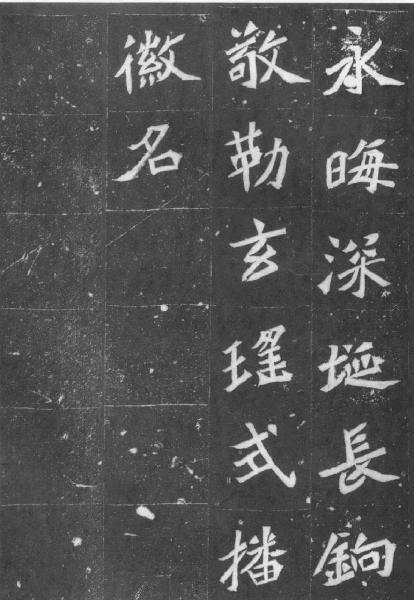 永晦深埏長銄
敬勒玄瑤式播
徽名